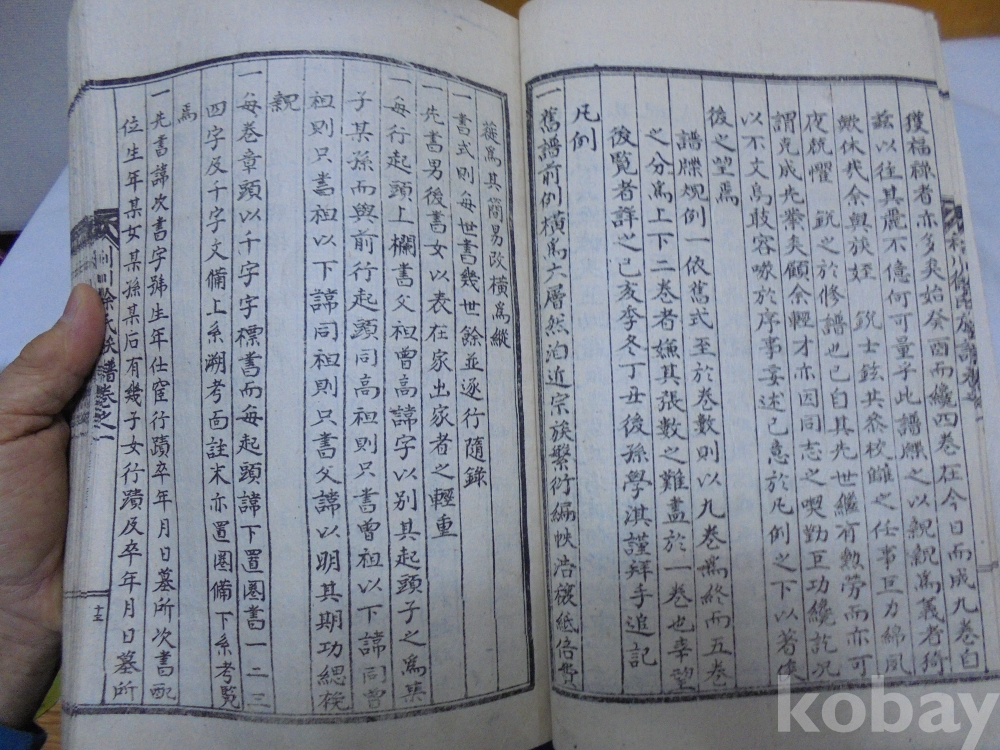 獲福祿者亦多矣始癸酉而纔四卷在今日而成九卷自
玆以往其麗不億何可量乎此譜牒之以親親爲義者猗
歟休哉余與族姪 銳士鉉共參校讎之任事巨力綿夙
夜兢懼 銳之於修譜也已自其先世繼有勲勞而亦可
謂克成先業矣顧余輕才亦因同志之勤巨功纔訖况
以不文烏敢容喙於序事妄述已意於凡例之下以著
後之望焉
譜牒規例一依舊式至於卷數則以九卷爲終而五卷
之分爲上下二卷者嫌其張數之難盡於一卷也幸望
後覽者詳之己亥季冬丁丑後孫學淇謹拜手追記
凡例
一舊譜前例橫爲六層然洎近宗族繁衍編帙浩穰紙倍費
蓰爲其簡易改橫爲縱
一書式則每世書幾世餘並逐行隨錄
一先書男後書女以表在家出家者之輕重
一每行起頭上欄書父祖曾高諱字以別其起頭子之爲某
子某孫而與前行起頭同高祖則只書曾祖以下諱同曾
祖則只書祖以下諱同祖則只書父諱以明其期功緦袒
親
一每卷章頭以千字字標書而每起頭諱下置圈書一二三
四字及千字文備上系溯考面註末亦置圈備下系考覽
焉
一先書諱次書字號生年仕宦行蹟卒年月日墓所次書配
位生年某女某孫某后有幾子女行蹟及卒年月日墓所
徐氏族譜卷之一
十五
kobay